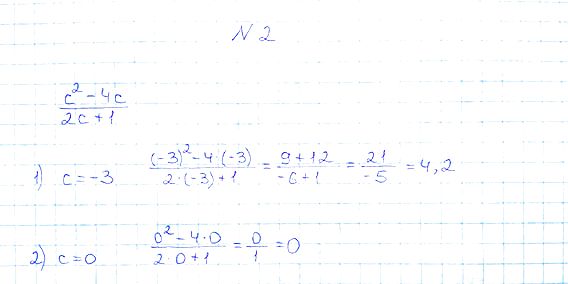 N 2
(c² - 4c)/(2c + 1)
1) c = -3 ((-3)² - 4·(-3))/(2·(-3) + 1) = (9 + 12)/(-6 + 1) = 21/(-5) = 4,2
2) c = 0 (0² - 4·0)/(2·0 + 1) = 0/1 = 0